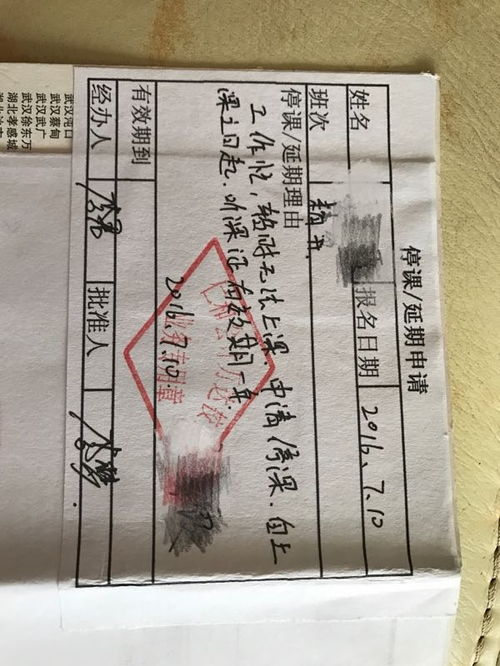 停课/延期申请
姓名 报名日期 2016.7.10
班次 精英
停课/延期理由
工作忙,暂时无法上课,申请停课,自上
课之日起,听课证有效期一年
2016.7.10
业务专用章
有效期到
经办人 批准人
武汉汉口
武汉蔡甸
武汉武广
武汉徐东万
湖北孝感城